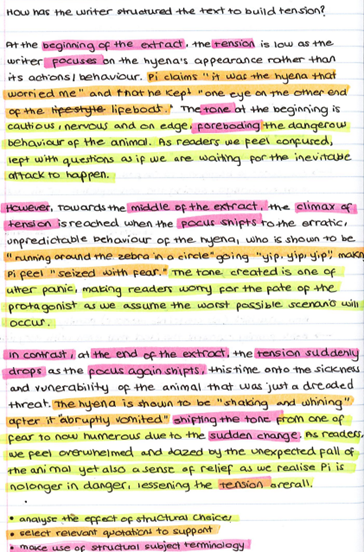 How has the writer structured the text to build tension?
At the beginning of the extract, the tension is low as the
writer focuses on the hyena's appearance rather than
its actions/behaviour. Pi claims "it was the hyena that
worried me" and that he kept "one eye on the other end
of the lifestyle lifeboat." The tone at the beginning is
cautious, nervous and on edge, foreboding the dangerous
behaviour of the animal. As readers we feel confused,
left with questions as if we are waiting for the inevitable
attack to happen.
However, towards the middle of the extract, the climax of
tension is reached when the focus shifts to the erratic,
unpredictable behaviour of the hyena, who is shown to be
"running around the zebra in a circle" going "yip, yip, yip", making
Pi feel "seized with fear." The tone created is one of
utter panic, making readers worry for the fate of the
protagonist as we assume the worst possible scenario will
occur.
In contrast, at the end of the extract, the tension suddenly
drops as the focus again shifts, this time onto the sickness
and vunerability of the animal that was just a dreaded
threat. The hyena is shown to be "shaking and whining"
after it "abruptly vomited" shifting the tone from one of
fear to now humerous due to the sudden change. As readers,
we feel overwhelmed and dazed by the unexpected fall of
the animal yet also a sense of relief as we realise Pi is
nolonger in danger, lessening the tension overall.
• analyse the effect of structural choice/
• select relevant quotations to support
• make use of structual subject terminology